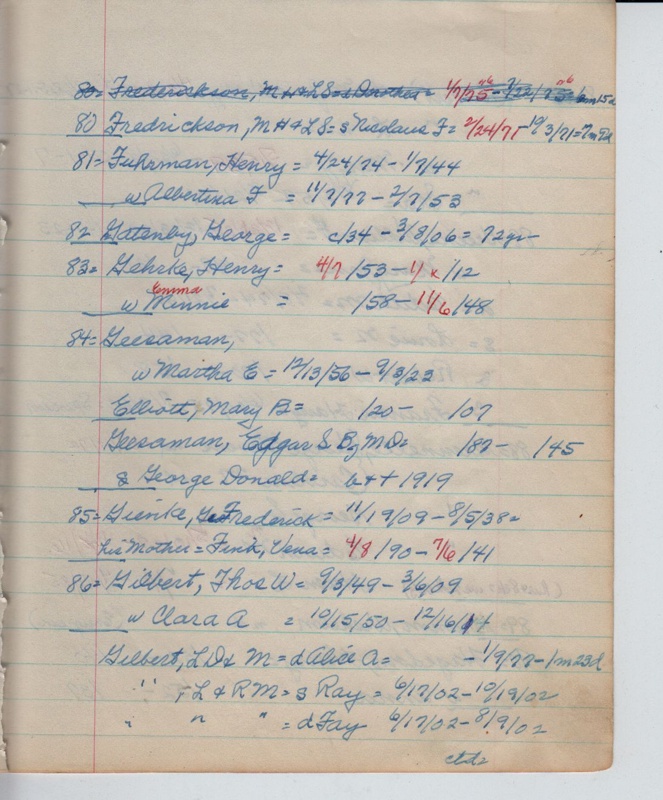 80= Frederickson, M H & L S= d Dorothea = 1/7/75 - 7/22/75 = 6m15d
80 Fredrickson, M H & L S= s Nicolaus F= 2/24/71 - 10/3/71=7m
81= Fuhrman, Henry = 4/24/74 - 1/7/44
w Albertina F = 11/7/77 - 2/7/53
82 Gatenby, George = c/34 - 3/8/06 = 72yr
83= Gehrke, Henry = 4/7/53 - 1/x/12
Emma
w Minnie = /58 - 11/6/48
84= Geesaman,
w Martha E = 12/13/56 - 9/3/23
Elliott, Mary B= /20 - /07
Geesaman, Edgar S B, MD= /87 - /45
s George Donald= b+t 1919
85= Gienke, Frederick = 11/19/09 - 8/5/38=
his Mother= Fink, Vena= 4/8/90 - 7/6/41
86= Gilbert, Thos W= 9/3/49 - 3/6/09
w Clara A = 10/15/50 - 12/16/
Gilbert, L D & M= d Alice A= - 1/9/77 - 1m23d
" , L & R M= s Ray = 6/17/02 - 10/19/02
" " " = d Fay 6/17/02 - 8/9/02
ctd=